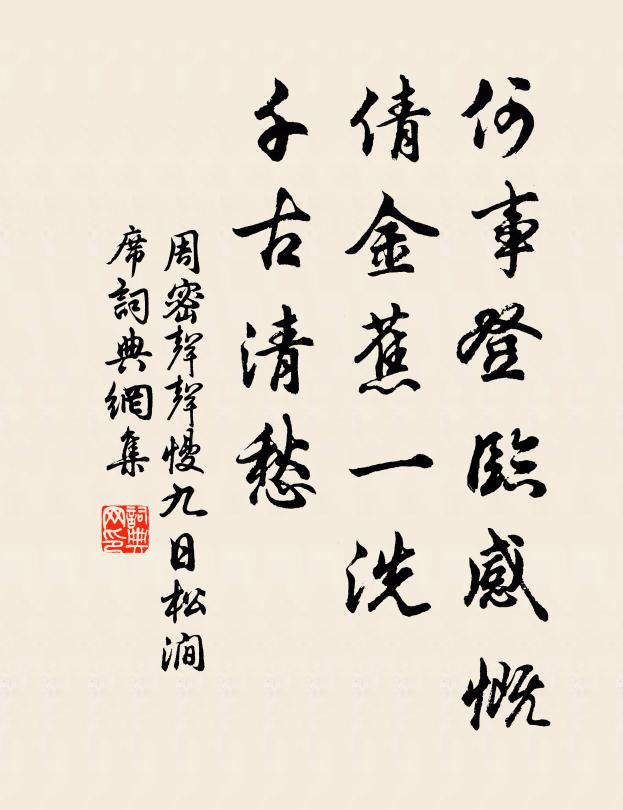 何事登臨感慨
倩金蕉一洗
千古清愁
周密聲聲慢九日松澗
席詞典網集
詞典网印